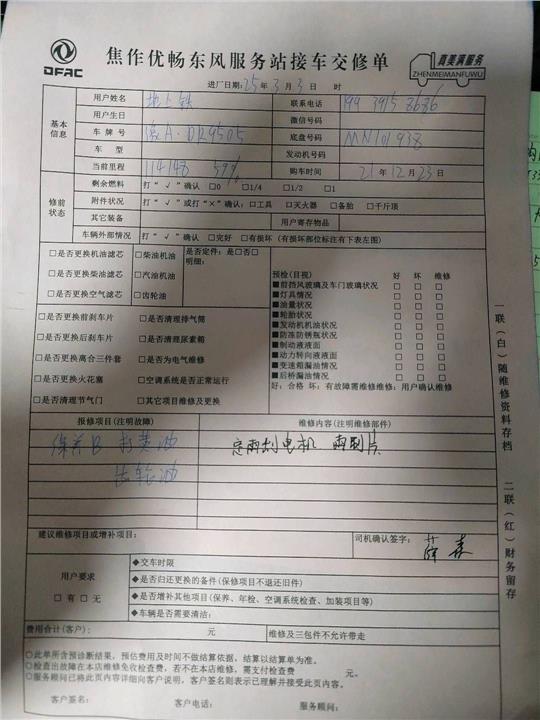 DFAC
焦作优畅东风服务站接车交修单
真美满服务
ZHENMEIMANFUWU
进厂日期:25年3月3日 时
基本信息
用户姓名 地上铁 联系电话 199 3915 8686
用户生日 微信号码
车牌号 渝A·DR9505 底盘号码 MN101938
车型 发动机号码
当前里程 114148 59% 购车时间 21年12月23日
修前状态
剩余燃料 打“√”确认 □0 □1/4 □1/2 □1
附件状况 打“√”或打“×”确认:□工具 □灭火器 □备胎 □千斤顶
其它装备 用户寄存物品
车辆外部情况 打“√”确认 □完好 □有损坏(有损坏部位标注有下表左图)
□是否更换机油滤芯 □柴油机油 是否定件:是□否□
□是否更换柴油滤芯 □汽油机油 明细:
□是否更换空气滤芯 □齿轮油
□是否更换前刹车片 □是否清理排气筒
□是否更换后刹车片 □是否清理尿素箱
□是否更换离合三件套 □是否为电气维修
□是否更换火花塞 □空调系统是否正常运行
□是否清理节气门 □其它项目维修及更换
预检(目视) 好 坏 维修
■前挡风玻璃及车门玻璃状况 □ □ □
■灯具情况 □ □ □
■油量状况 □ □ □
■轮胎状况 □ □ □
■发动机机油情况 □ □ □
■防冻防锈瓶状况 □ □ □
■制动液液面 □ □ □
■动力转向液液面 □ □ □
■变速箱漏油情况 □ □ □
■后桥漏油情况 □ □ □
好:合格 坏:有故障需维修维修:用户确认维修
报修项目(注明故障) 维修内容(注明维修部件)
保养B 打黄油 定雨刮电机 雨刮片
齿轮油
建议维修项目或增补项目: 司机确认签字: 薛森
用户要求
□有 □无
◆交车时限
◆是否归还更换的备件(保修项目不退还旧件)
◆是否增补其他项目(保养、年检、空调系统检查、加装项目等)
◆车辆是否需要清洁:
费用合计(客户): 元 维修及三包件不允许带走
◇此单所含预诊断结果,预估费用及时间不做结算依据、结算以结算单为准。
◇检查出故障在本店维修免收检查费,若不在本店维修,需支付检查费 元。
◇服务顾问已将此页内容详细向客户说明,客户签名则表示已理解并接受此页内容。
客户签名: 客户电话: 服务顾问:
一联(白)随维修资料存档 二联(红)财务留存